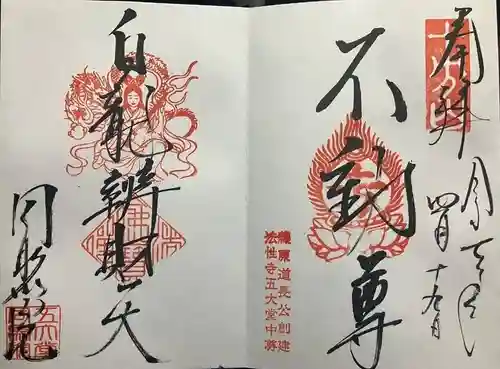 奉拝
四月十九日
不動尊
藤原道長公創建
法性寺五大堂中尊
白龍辨財天
同聚院